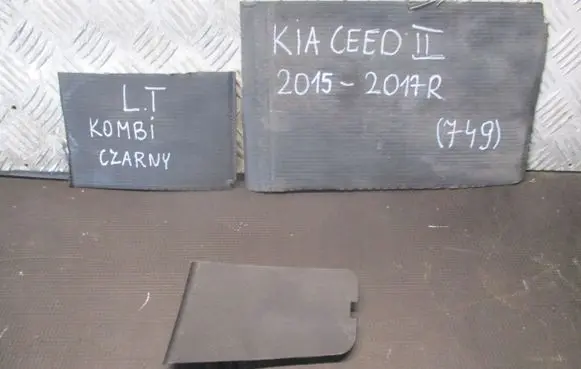 L.T
KOMBi
CZARNY
KIA CEED II
2015 - 2017R
(749)